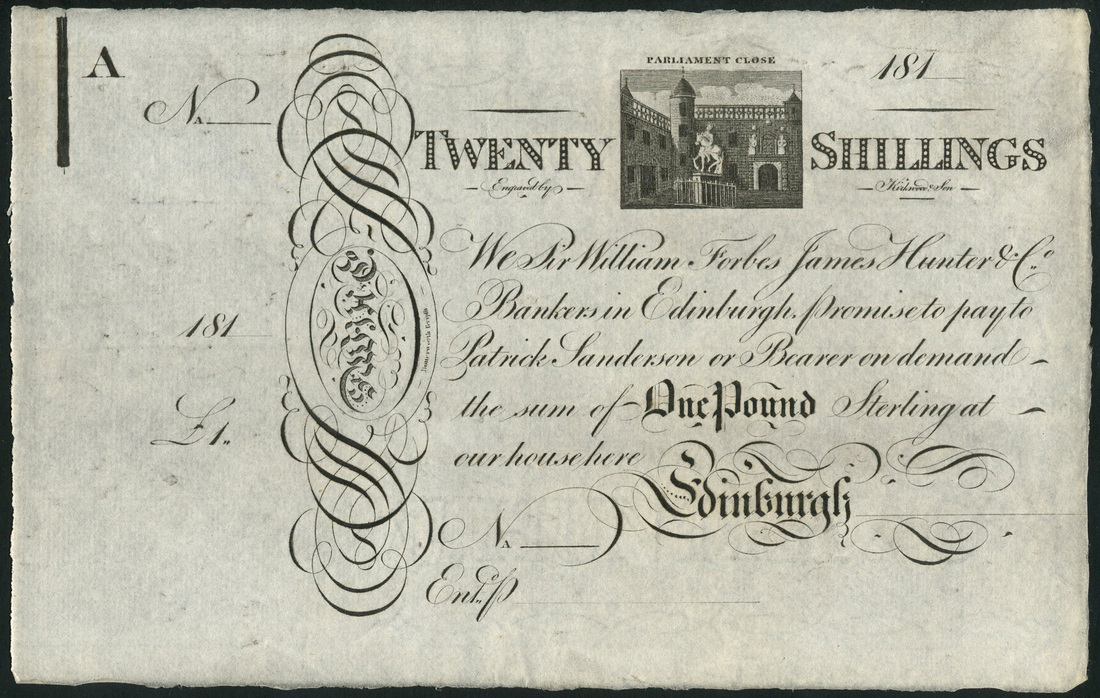 A
PARLIAMENT CLOSE
181
No.
TWENTY SHILLINGS
Engraved by Kirkwood & Son
We Sir William Forbes James Hunter & Co.
Bankers in Edinburgh, promise to pay to
181
Patrick Sanderson or Bearer on demand
the sum of One Pound Sterling at
£1..
our house here
Edinburgh
No.
Entd. p